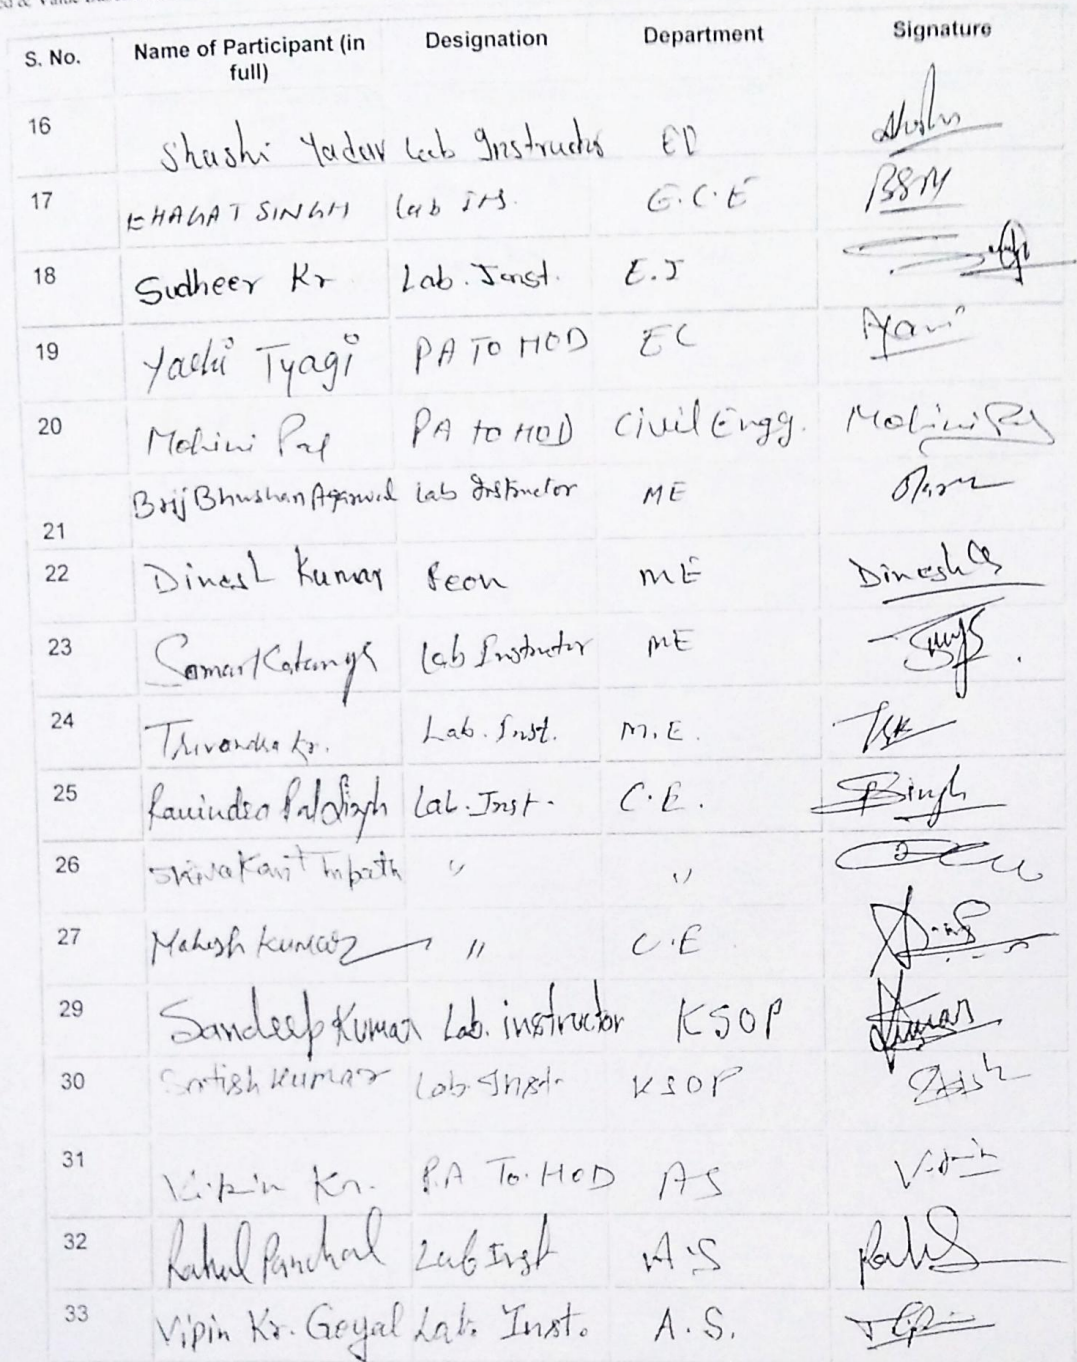 S. No. Name of Participant (in full) Designation Department Signature
16 Shashi Yadav Lab Instructor
17 BHAGAT SINGH Lab Ins. E.C.E BSM
18 Sudheer Kr Lab. Inst. E.I
19 Yashi Tyagi PA TO HOD EC
20 Mohini Pal PA to HOD Civil Engg. Mohini Pal
21 Brij Bhushan Agarwal Lab Instructor ME
22 Dinesh Kumar Peon ME Dinesh
23 Lab Instructor ME
24 Kr. Lab. Inst. M.E.
25 Ravindra Pal Singh Lab. Inst. C.E. Singh
26 Shivakant Tripathi " "
27 Mahesh Kumar " C.E
29 Sandeep Kumar Lab. instructor KSOP Kumar
30 Satish Kumar Lab. Inst. KSOP Satish
31 Vipin Kr. P.A To. HOD AS Vipin
32 Rahul Panchal Lab Inst A.S
33 Vipin Kr. Goyal Lab. Inst. A.S.